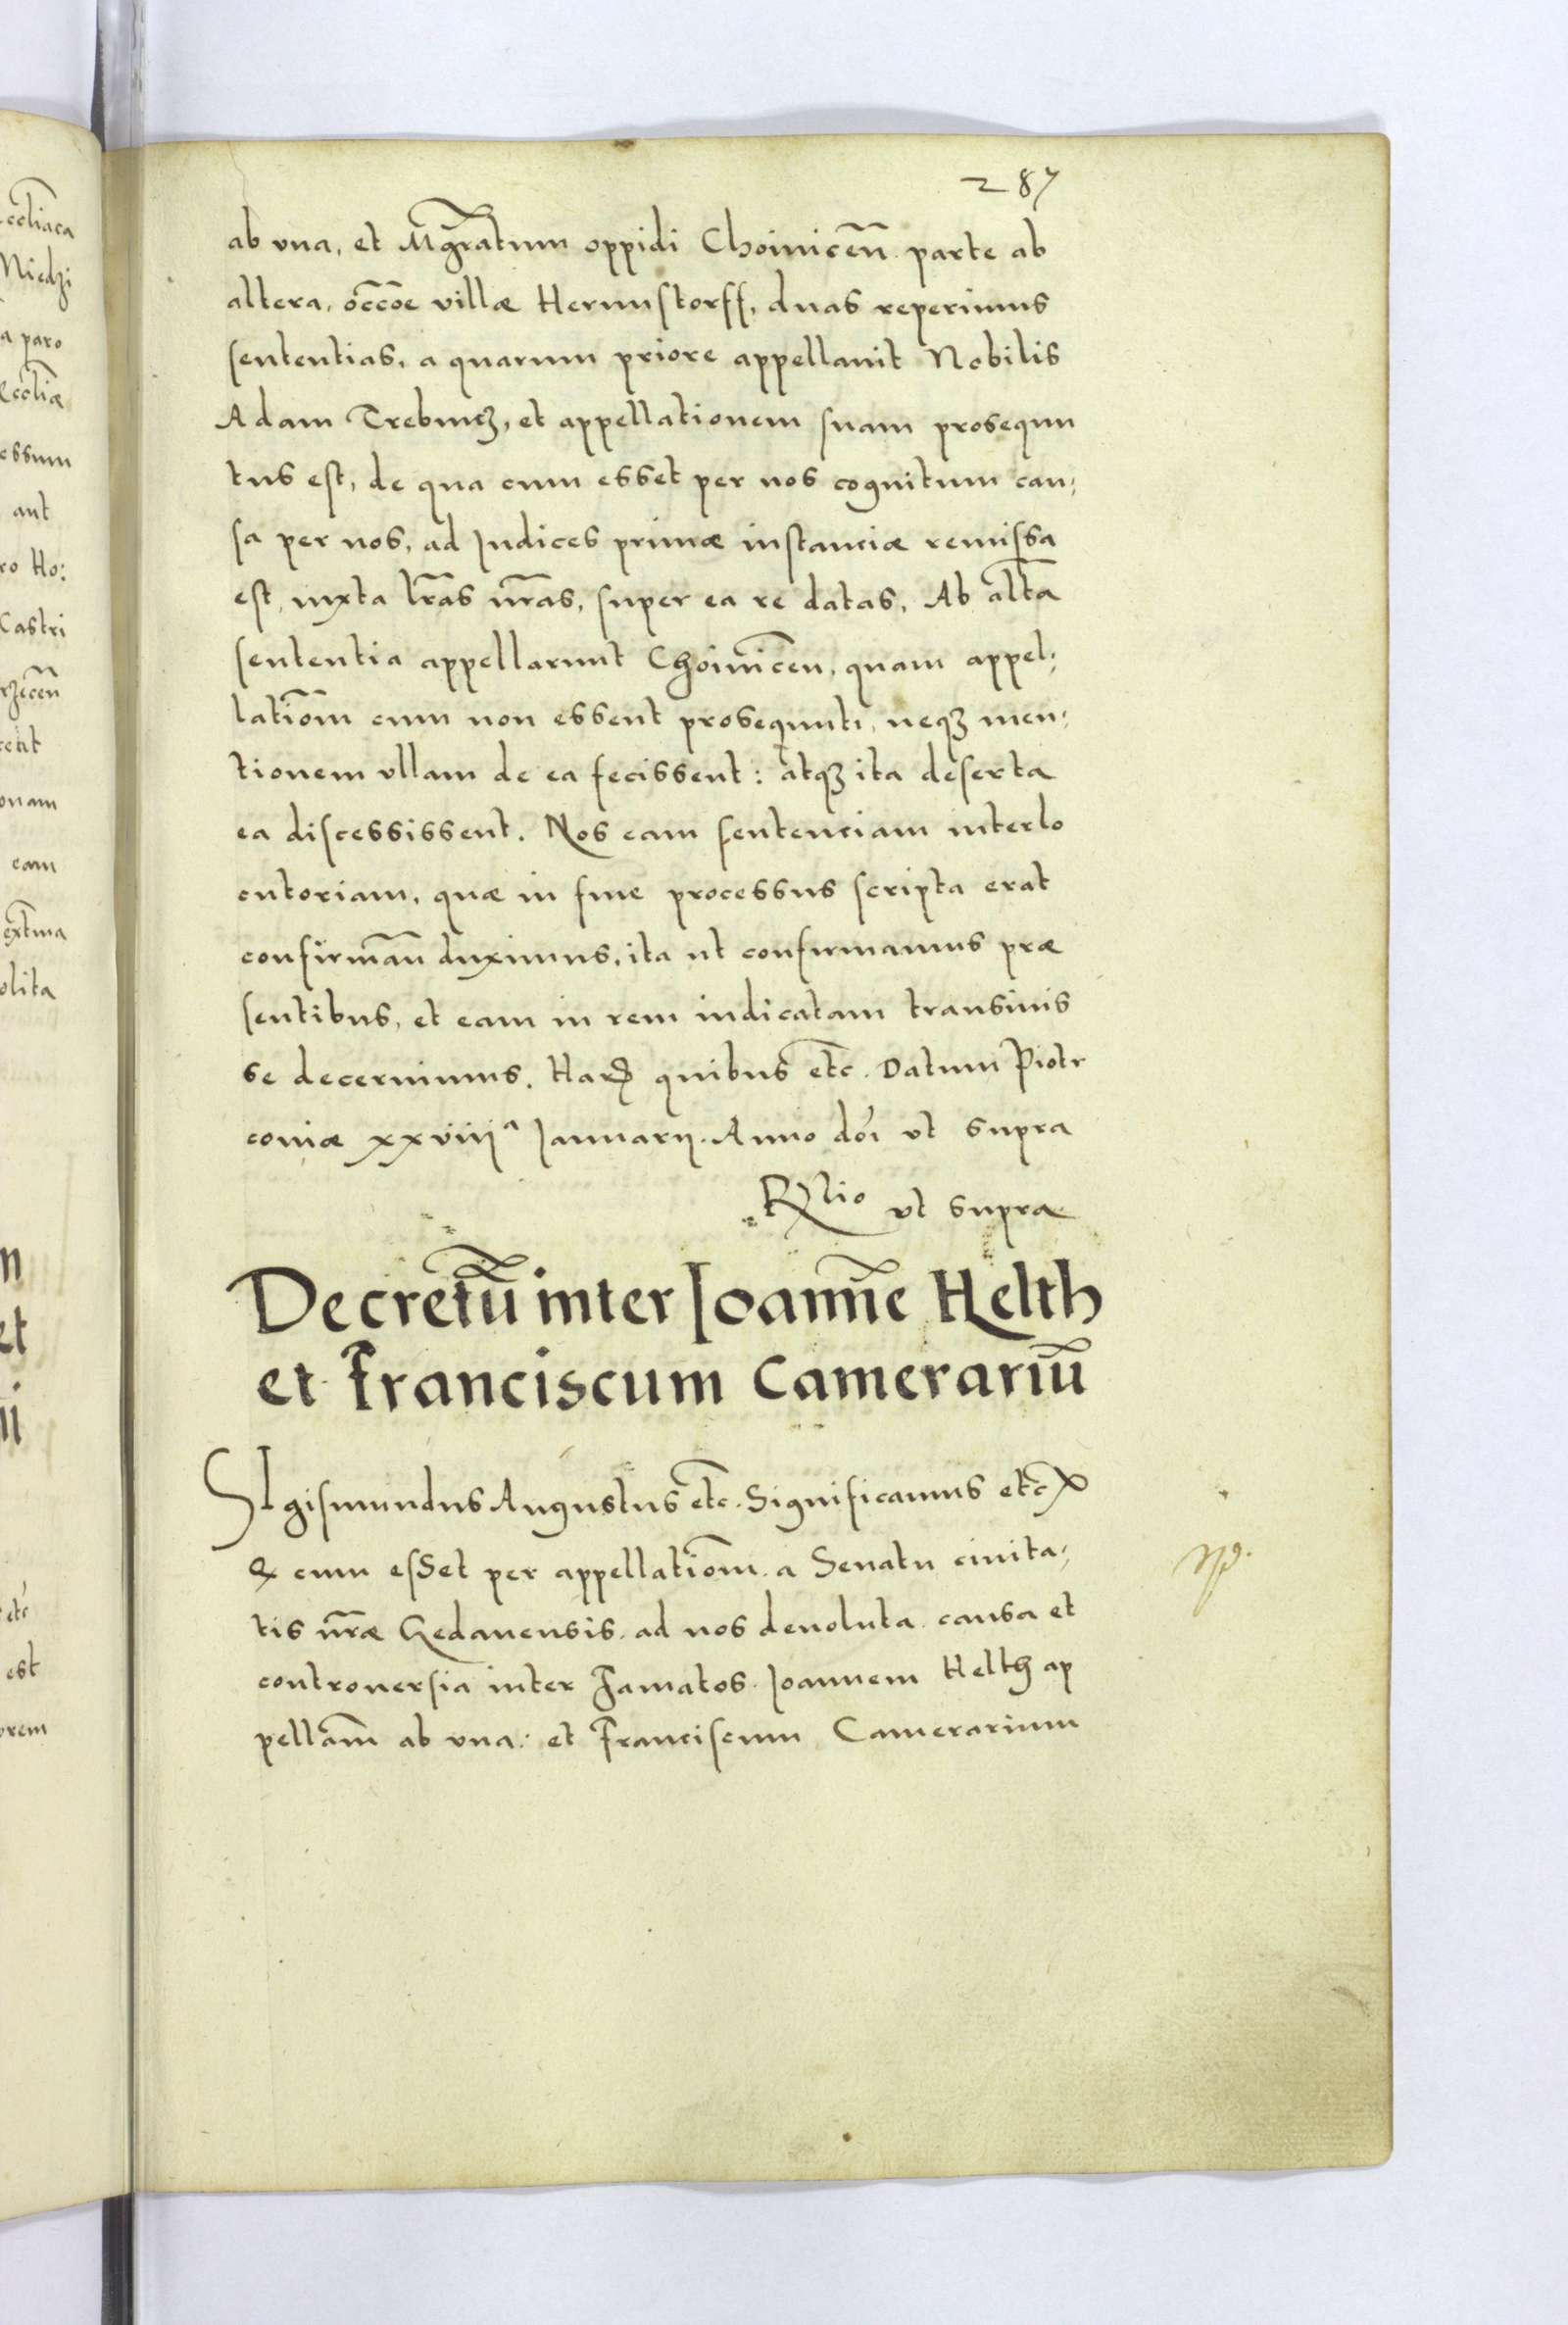 287
ab vna, et Mgr̃atum oppidi Choiniceñ parte ab
altera, occ̃oe villæ Hermstorff, duas reperimus
sententias, a quarum priore appellauit Nobilis
Adam Trebnicz, et appellationem suam prosequu
tus est, de qua cum esset per nos cognitum cau;
sa per nos, ad Iudices primæ instanciæ remissa
est, iuxta lr̃as nr̃as, super ea re datas. Ab alt̃a
sententia appellarunt Choiniceñ, quam appel;
latiom̃ cum non essent prosequuti, neqȝ men;
tionem vllam de ea fecissent: atqȝ ita deserta
ea discessissent. Nos eam sentenciam interlo
cutoriam, quæ in fine processus scripta erat
confirmañ duximus, ita ut confirmamus præ
sentibus, et eam in rem iudicatam transiuis
se decernimus. Harꝝ quibus etc̃. Datum Piotr
coniæ xxviijᵃ Ianuarij. Anno dõi vt supra
Rꝉio vt supra
Decretũ inter Ioanñe Helth
et Franciscum Camerariũ
SIgismundus Augustus etc̃. Significamus etc̃
Q cum esset per appellatiom̃ a Senatu ciuita;
tis nr̃æ Gedanensis ad nos deuoluta causa et
controuersia inter Famatos Ioannem Helth ap
pellam̃ ab vna: et Franciscum Camerarium
ccliaca
Niedzi
a paro
Eccliæ
essum
aut
ro Ho:
Castri
rzecen̄
cent
onam
eam
olita
n
et
ij
etc̃
est
orem